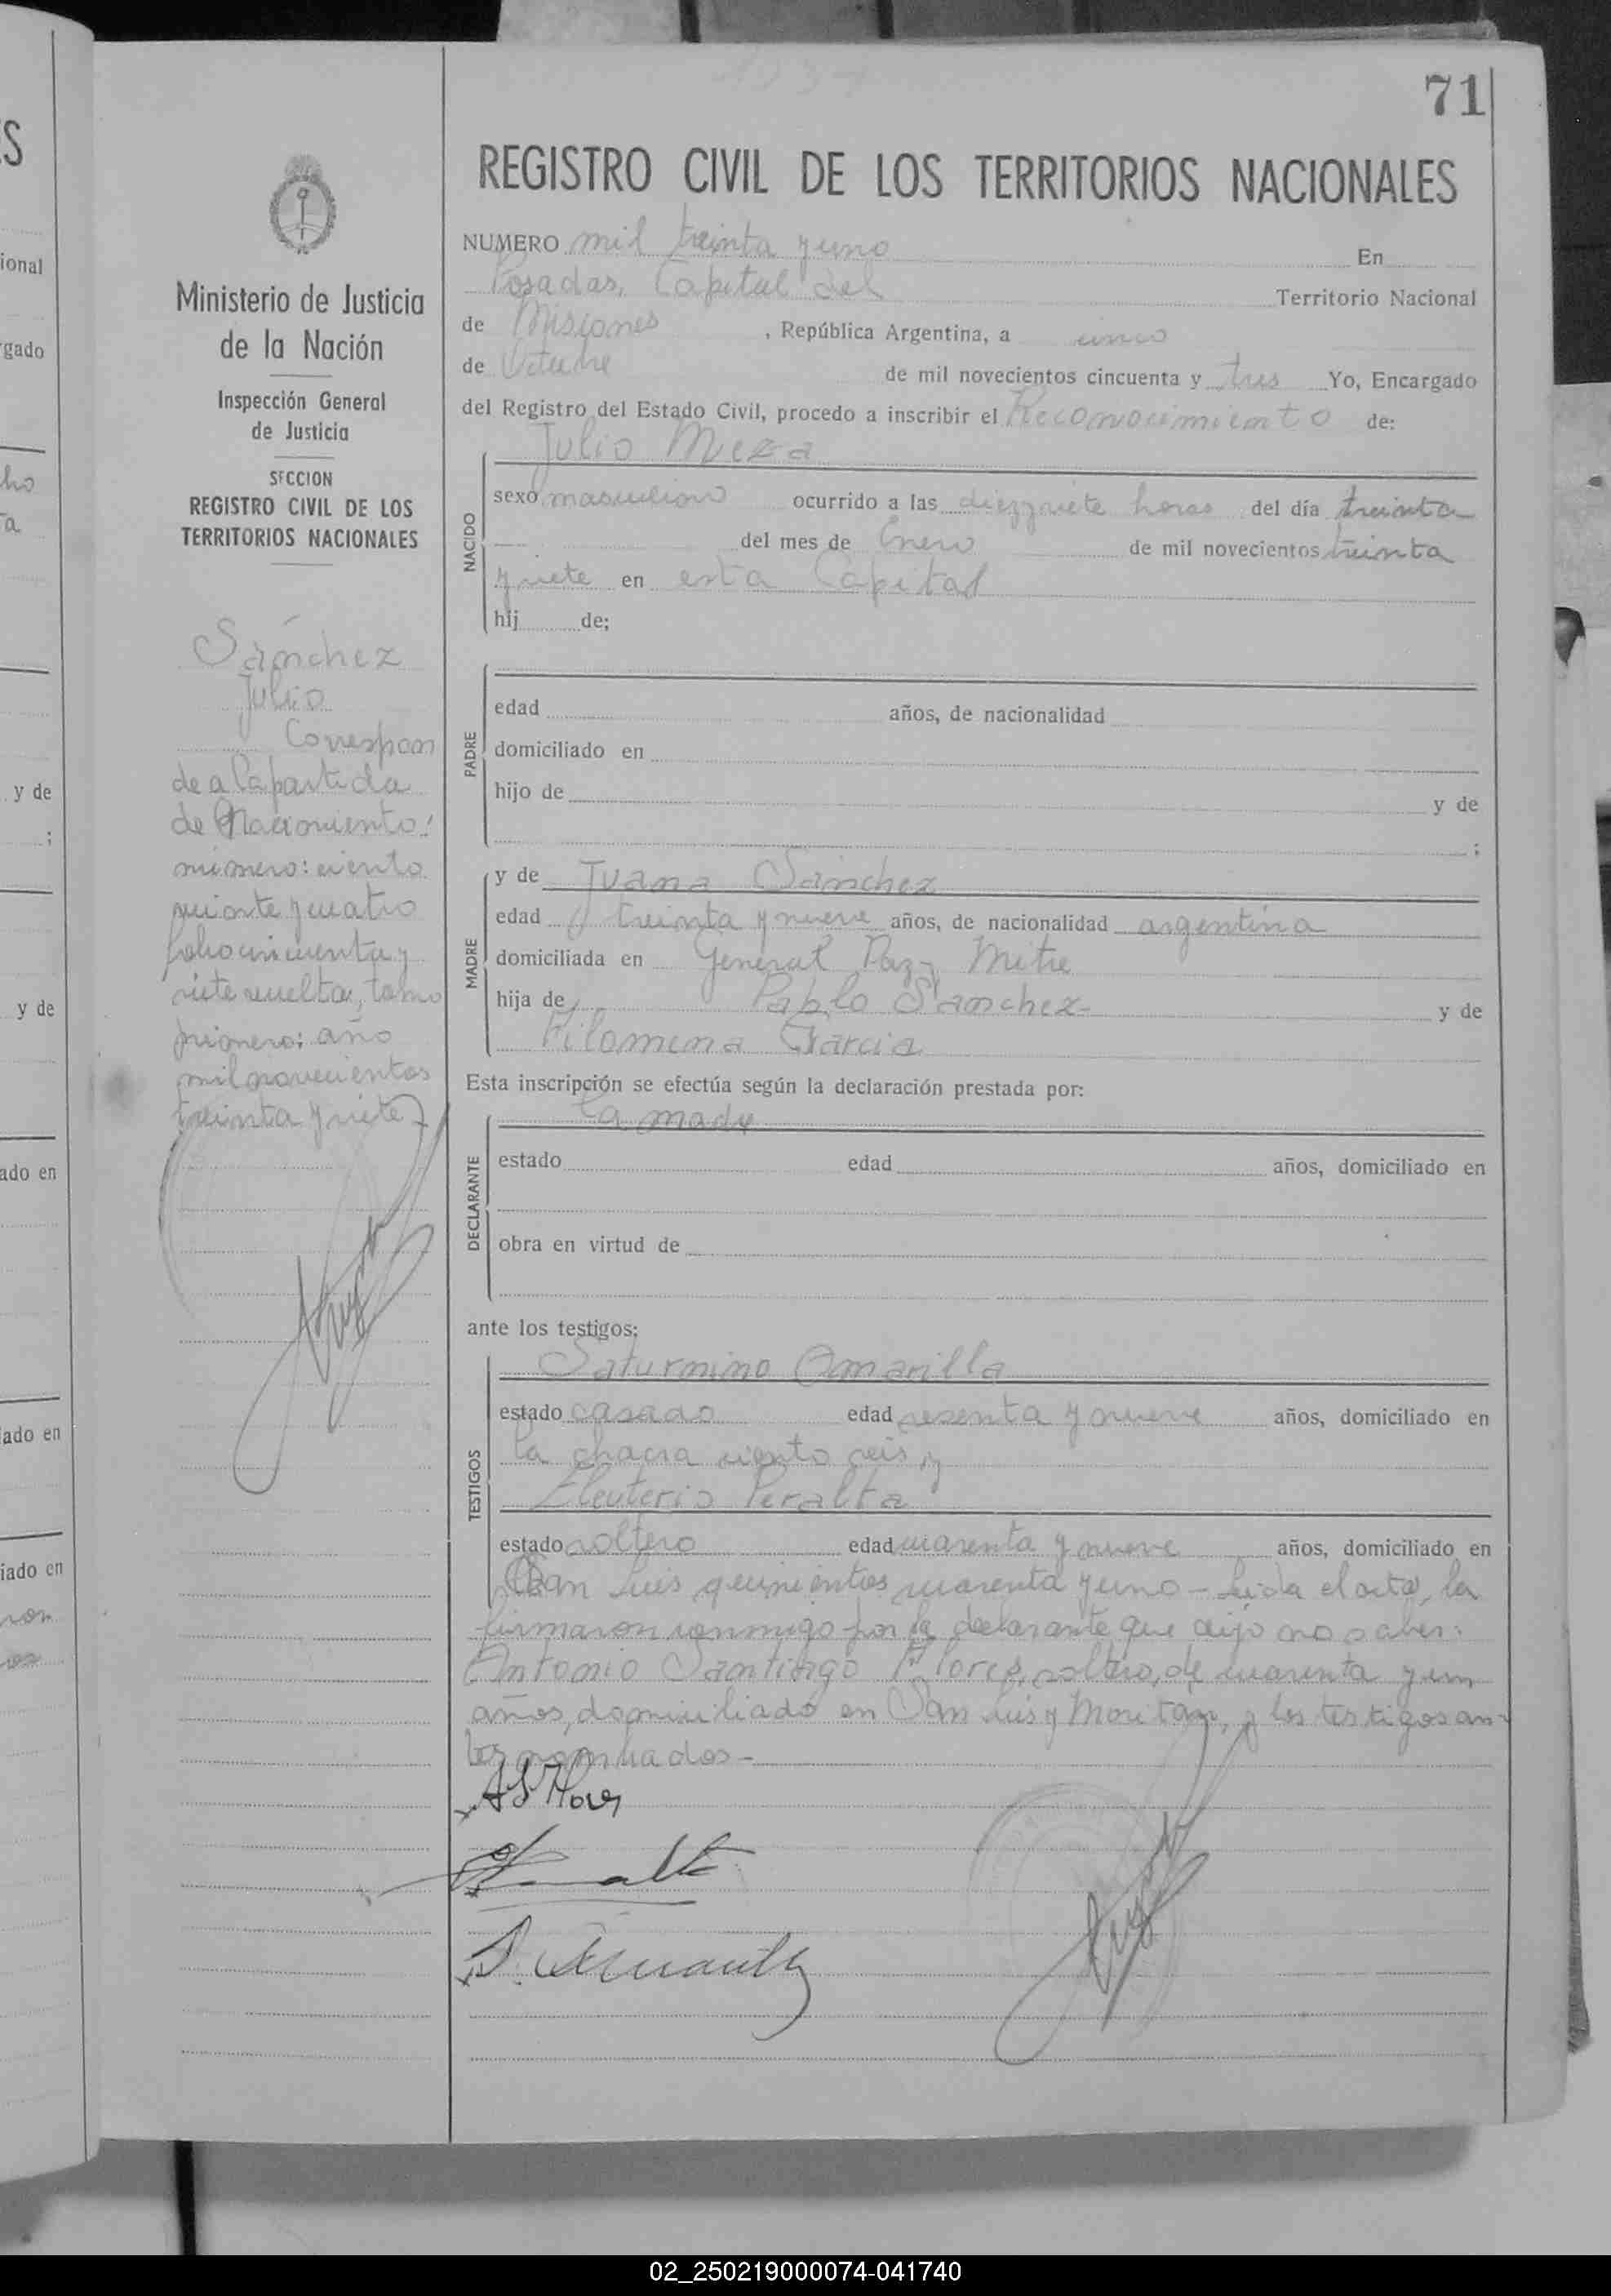 71
REGISTRO CIVIL DE LOS TERRITORIOS NACIONALES
NUMERO mil treinta y uno En
Posadas, Capital del Territorio Nacional
de Misiones, República Argentina, a cinco
de Octubre de mil novecientos cincuenta y tres Yo, Encargado
del Registro del Estado Civil, procedo a inscribir el Reconocimiento de:
Julio Meza
NACIDO
sexo masculino ocurrido a las diezysiete horas del día treinta
del mes de Enero de mil novecientos treinta
y siete en esta Capital
hij de;
PADRE
edad años, de nacionalidad
domiciliado en
hijo de y de
;
MADRE
y de Juana Sánchez
edad treinta y nueve años, de nacionalidad argentina
domiciliada en General Paz y Mitre
hija de Pablo Sánchez y de
Filomena Garcia
Esta inscripción se efectúa según la declaración prestada por:
DECLARANTE
la madre
estado edad años, domiciliado en
obra en virtud de
ante los testigos:
TESTIGOS
Saturnino Amarilla
estado casado edad sesenta y nueve años, domiciliado en
la chacra ciento seis, y
Eleuterio Peralta
estado soltero edad cuarenta y nueve años, domiciliado en
San Luis quinientos cuarenta y uno - Leida el acta, la
firmaron conmigo por la declarante que dijo no saber:
Antonio Santiago Flores, soltero, de cuarenta y un
años, domiciliado en San Luis y Moritan, y los testigos an-
tes nombrados-
A S Flores
Ministerio de Justicia
de la Nación
Inspección General
de Justicia
SECCION
REGISTRO CIVIL DE LOS
TERRITORIOS NACIONALES
Sánchez
Julio
Correspon
de a la partida
de Nacimiento:
número: ciento
veinte y cuatro
folio cincuenta y
siete vuelta, tomo
primero: año
mil novecientos
treinta y siete
S
ional
rgado
ho
ra
y de
;
y de
ado en
iado en
iado en
02_250219000074-041740